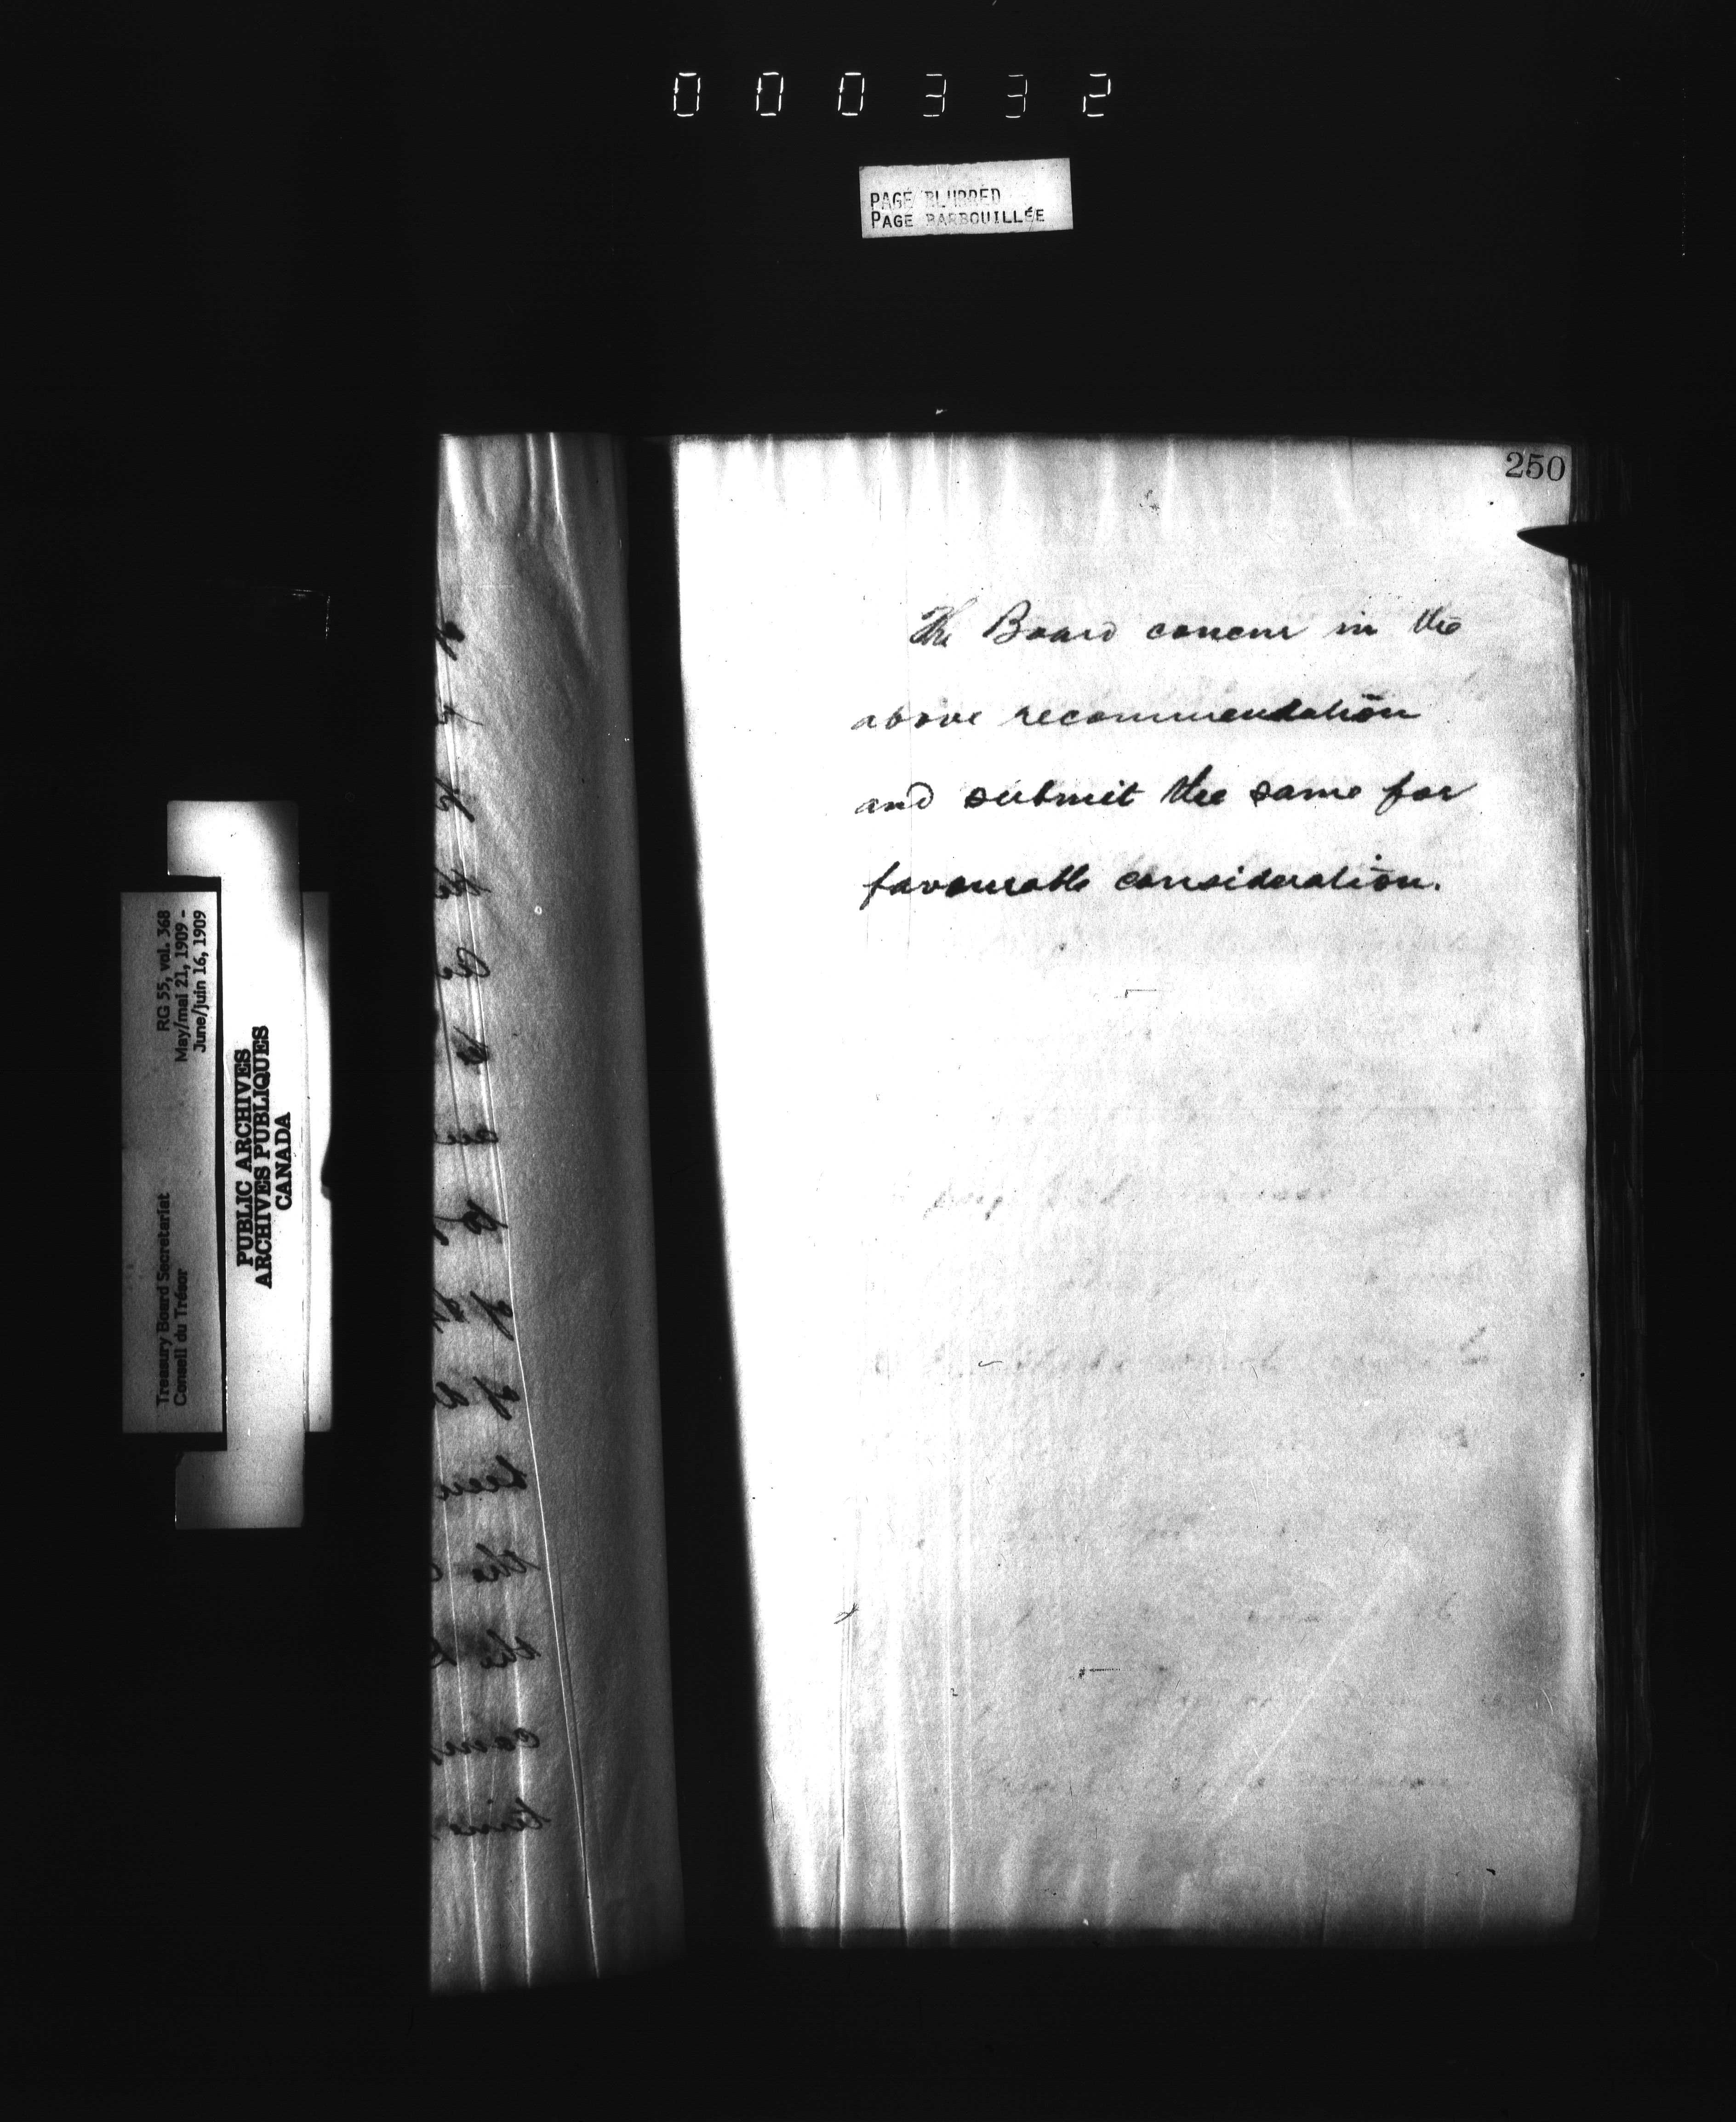 000332
PAGE BLURRED
PAGE BARBOUILLÉE
250
The Board concur in the
above recommendation
and submit the same for
favourable consideration.
RG 55, vol. 368
May/mai 21, 1909 -
June/juin 16, 1909
Treasury Board Secretariat
Conseil du Trésor
PUBLIC ARCHIVES
ARCHIVES PUBLIQUES
CANADA